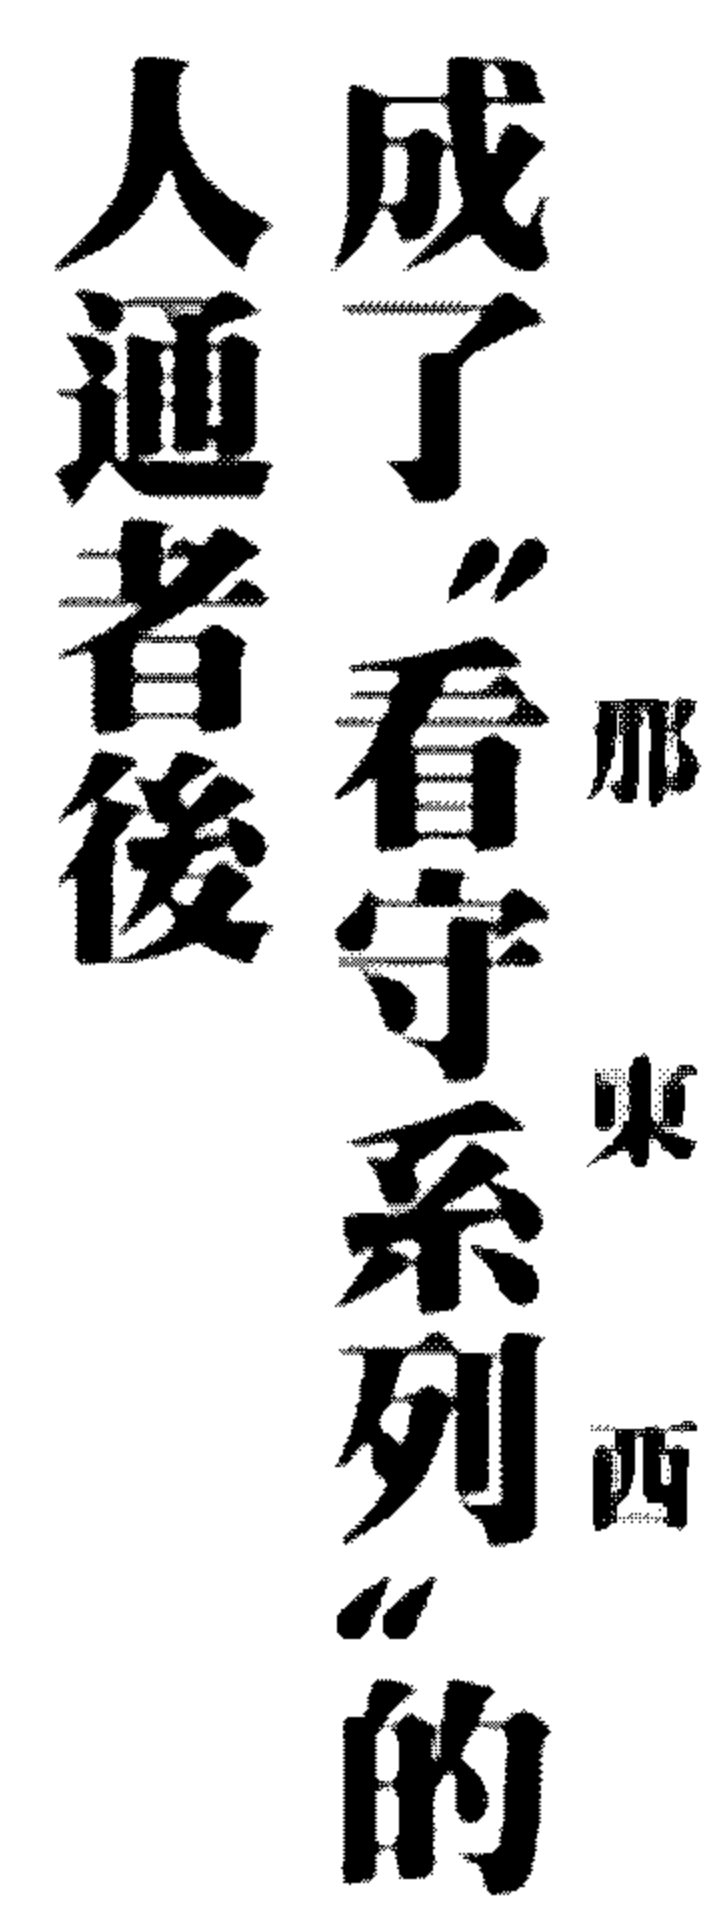 那東西
成了〝看守系列〝的
人通者後